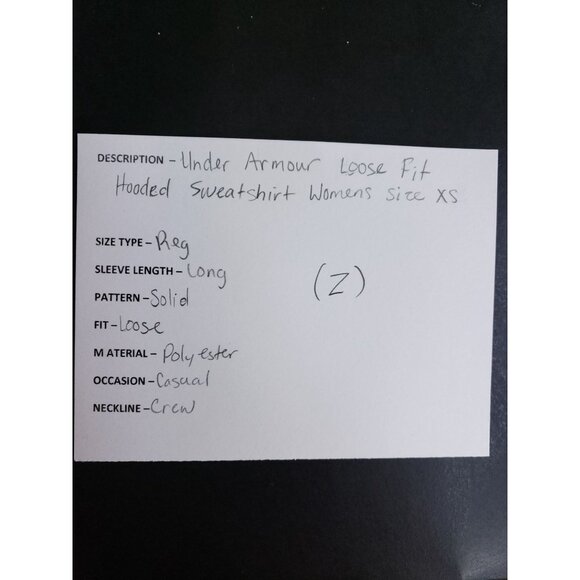 DESCRIPTION – Under Armour Loose Fit
Hooded Sweatshirt Womens Size XS
SIZE TYPE – Reg
SLEEVE LENGTH – Long
(Z)
PATTERN – Solid
FIT – Loose
M ATERIAL – Polyester
OCCASION – Casual
NECKLINE – Crew